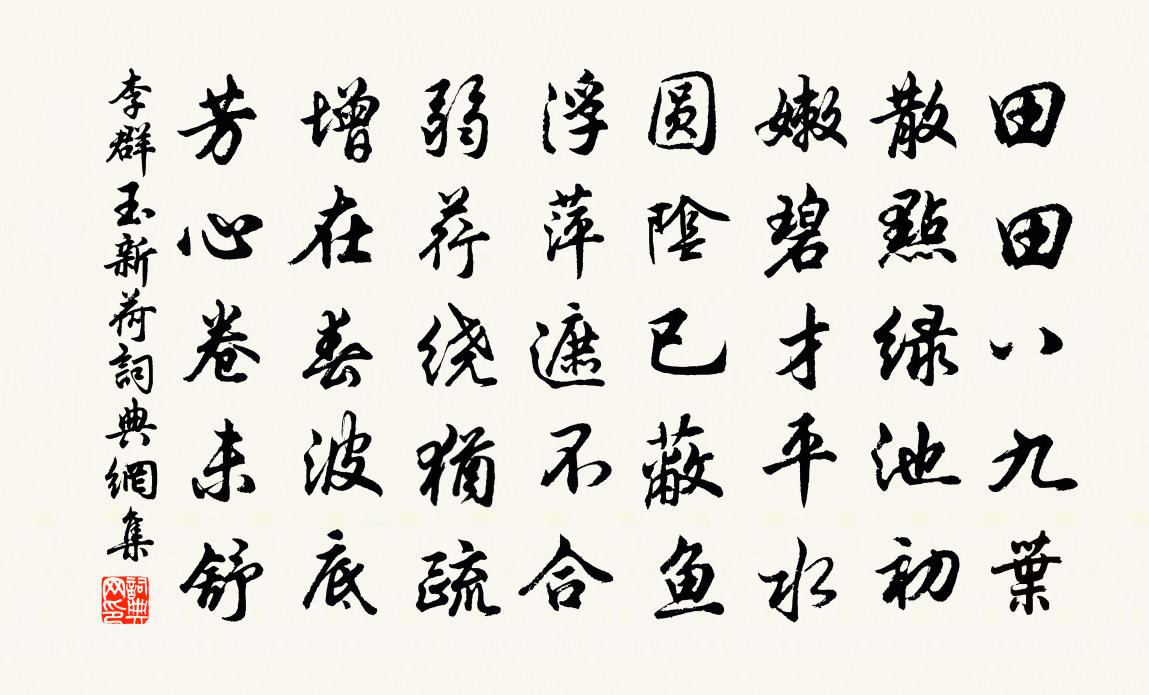 田田八九葉
散點绿池初
嫩碧才平水
圓陰已蔽鱼
浮萍遮不合
弱荇绕猶疏
增在春波底
芳心卷未舒
李群玉新荷詞典網集
詞典网印